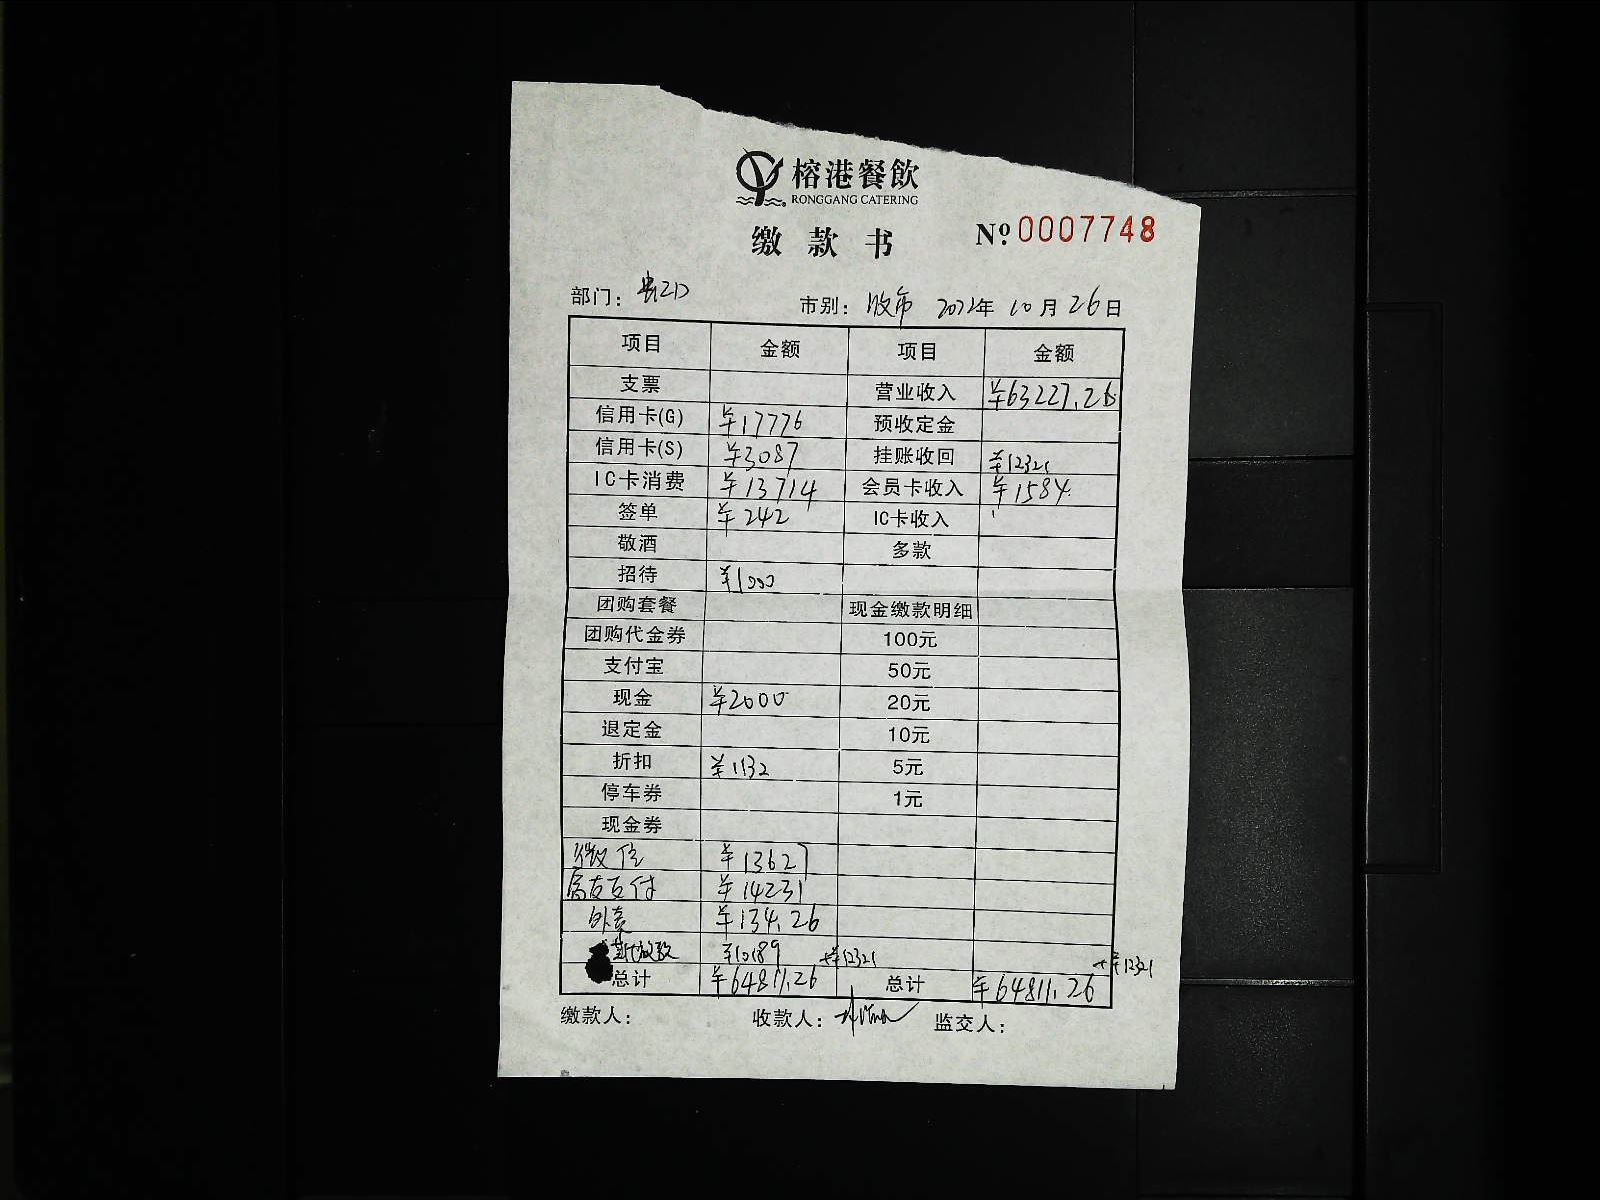 榕港餐飲
RONGGANG CATERING
缴款书
№ 0007748
部门：
市别： 2022年 10月 26日
项目 金额 项目 金额
支票 营业收入 ¥63227.26
信用卡(G) ¥17776 预收定金
信用卡(S) ¥3087 挂账收回 ¥12321
IC卡消费 ¥13714 会员卡收入 ¥1584
签单 ¥242 IC卡收入
敬酒 多款
招待 ¥1000
团购套餐 现金缴款明细
团购代金券 100元
支付宝 50元
现金 ¥2000 20元
退定金 10元
折扣 ¥1132 5元
停车券 1元
现金券
微信 ¥13627
¥14231
外卖 ¥134.26
¥10189 +¥12321 +¥12321
总计 ¥64811.26 总计 ¥64811.26
缴款人： 收款人： 监交人：